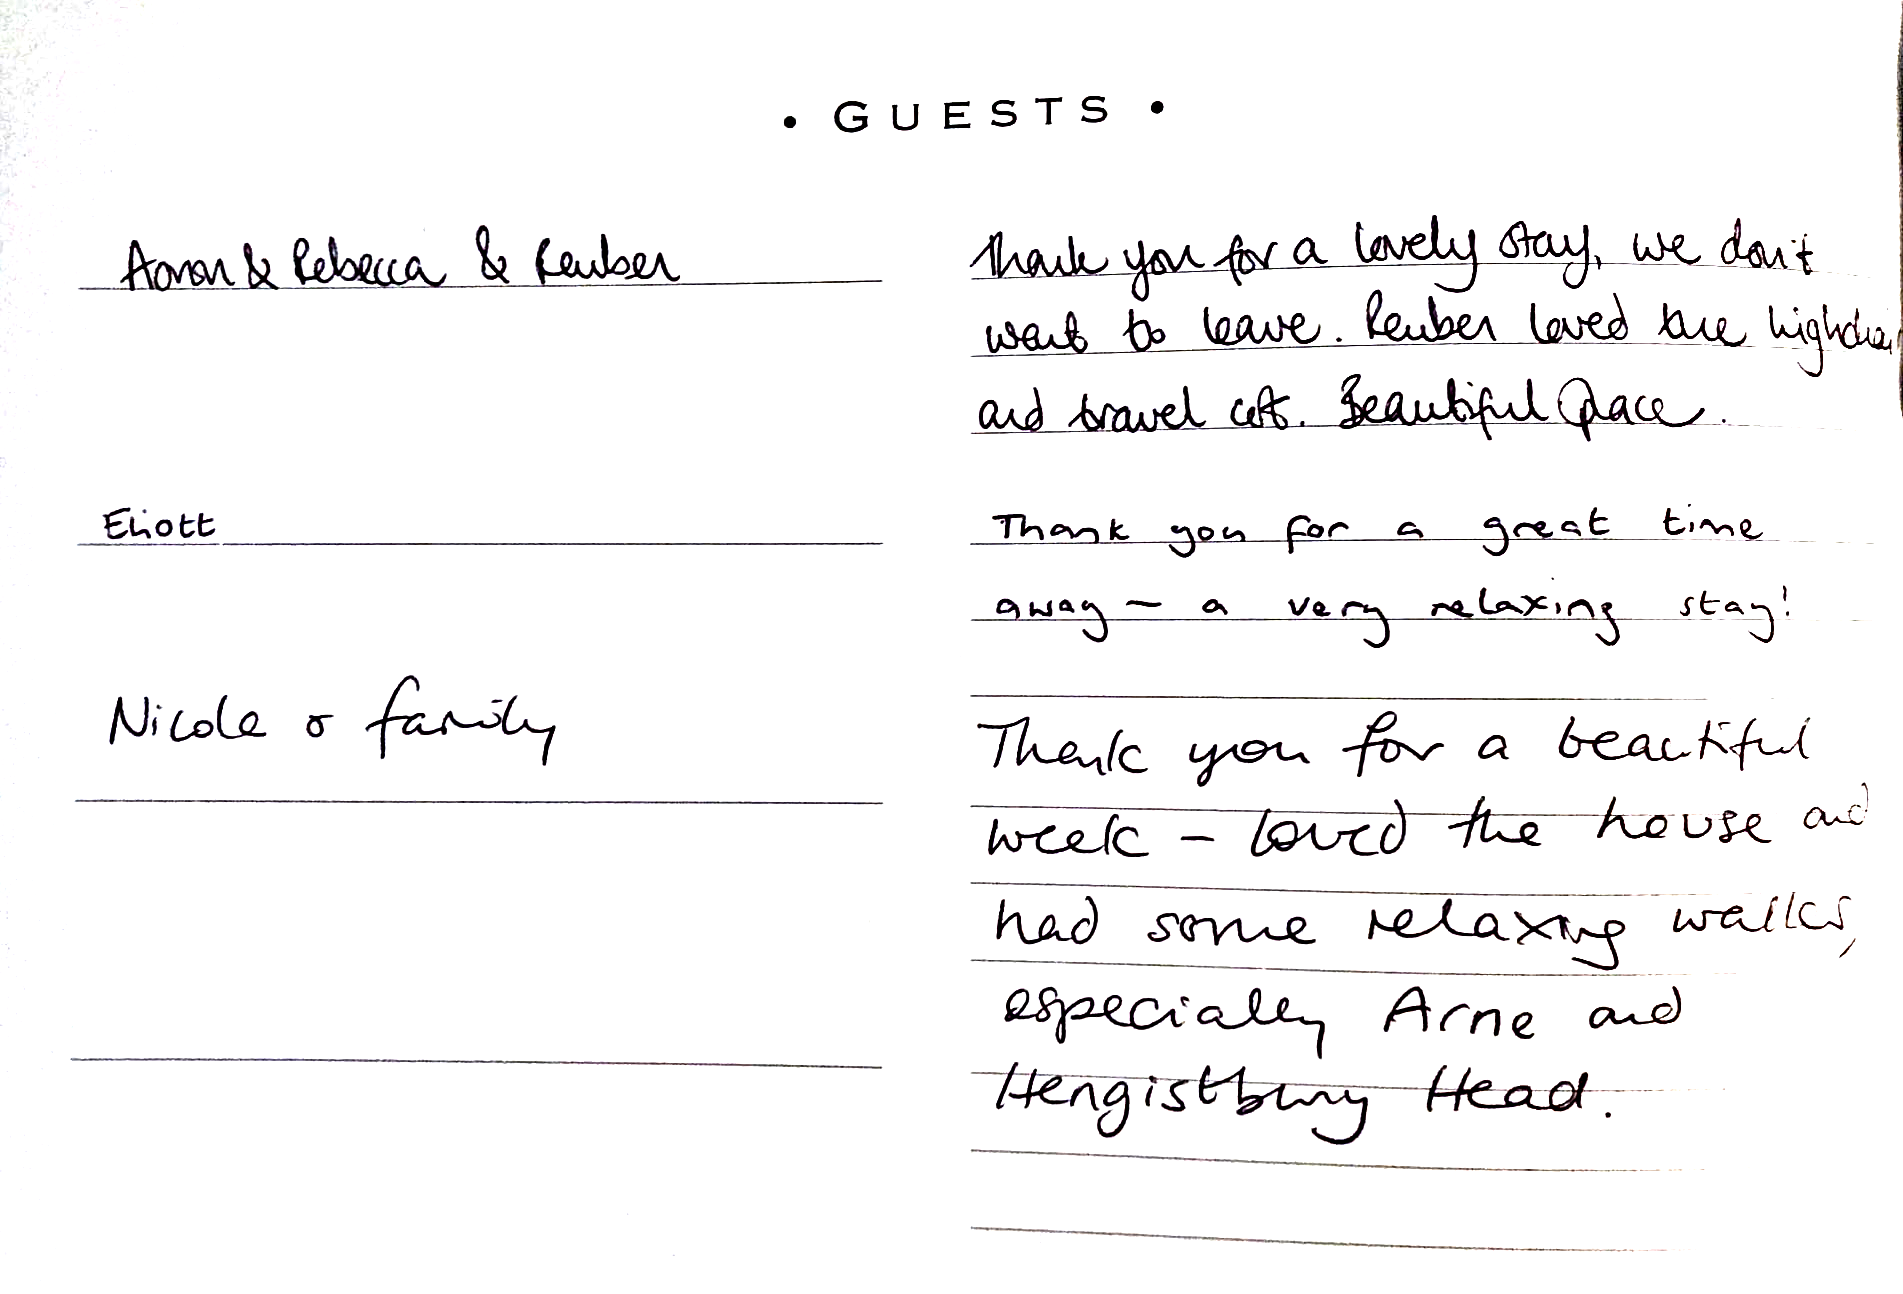 • GUESTS •
Aaron & Rebecca & Reuben
Thank you for a lovely stay, we don't
want to leave. Reuben loved the highchai
and travel cot. Beautiful Place.
Eliott
Thank you for a great time
away – a very relaxing stay!
Nicole & family
Thank you for a beautiful
week – loved the house and
had some relaxing walks,
especially Arne and
Hengistbury Head.